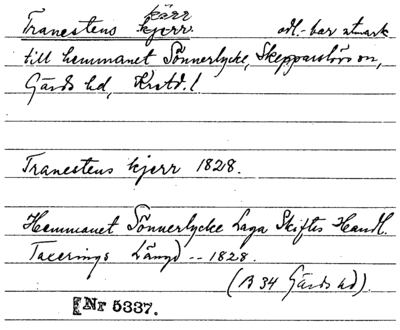 kärr
Tranestens kjerr odl.-bar utmark
till hemmanet Sönnerlycke, Skepparslövs sn,
Gärds hd, Krstd. l
Tranestens kjerr 1828.
Hemmanet Sönnerlycke Laga Skiftes Handl.
Taxerings Längd -- 1828.
(B 34 Gärds hd).
[Nr 5337.